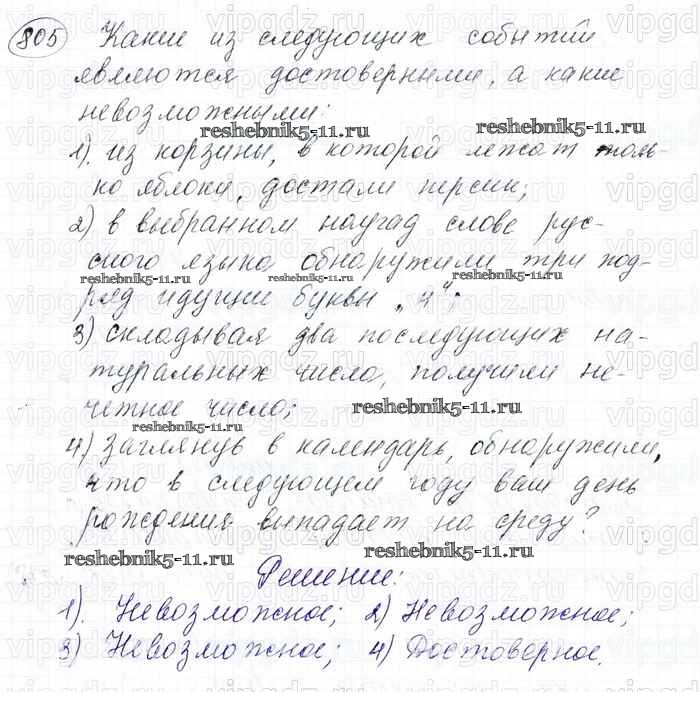 805 Какие из следующих событий
являются достоверными, а какие
невозможными:
reshebnik5-11.ru reshebnik5-11.ru
1). из корзины, в которой лежат толь-
ко яблоки, достали персик;
2) в выбранном наугад слове рус-
ского языка обнаружили три под-
reshebnik5-11.ru reshebnik5-11.ru reshebnik5-11.ru
ряд идущие буквы „ч“;
3) складывая два последующих на-
туральных числа, получили не-
четное число;
reshebnik5-11.ru
reshebnik5-11.ru
4) заглянув в календарь, обнаружили,
что в следующем году ваш день
рождения выпадает на среду?
reshebnik5-11.ru reshebnik5-11.ru
Решение:
1). Невозможное; 2) Невозможное;
3) Невозможное; 4) Достоверное.